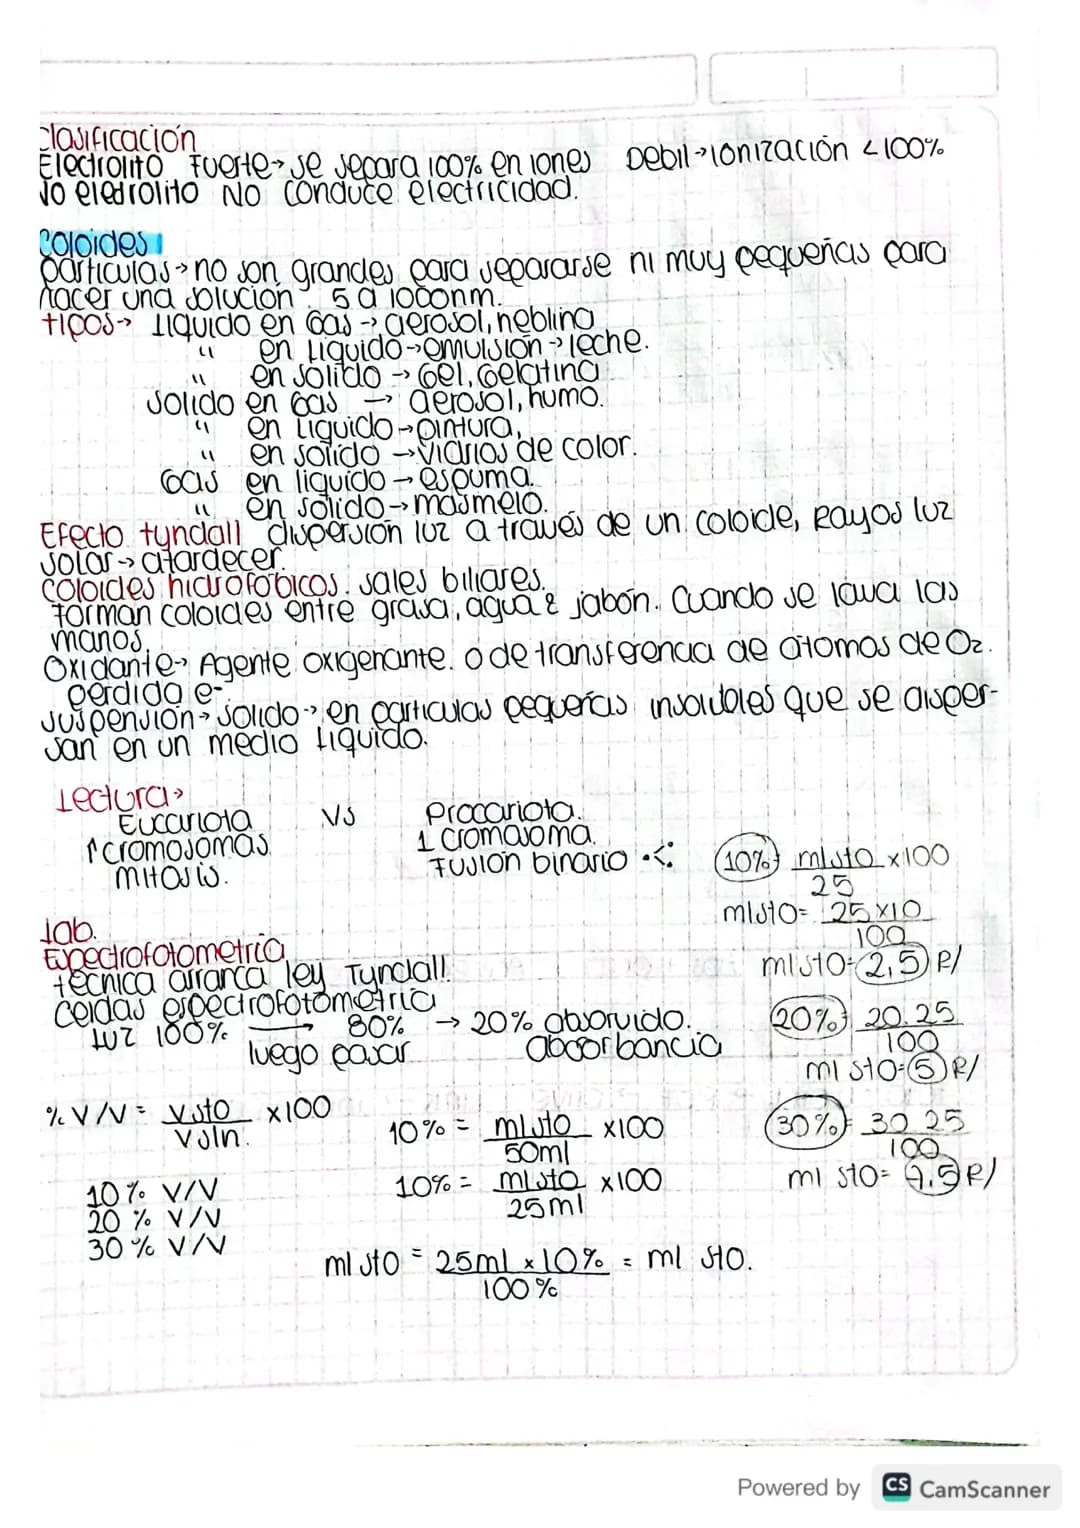 Clasificación
Electrolito Fuerte → se separa 100% en iones Debil → ionización < 100%
No electrolito No conduce electricidad.
Coloides
particulas → no son grandes para separarse ni muy pequeñas para
hacer una solución. 5 a 1000nm.
tipos → Liquido en Gas → aerosol, neblina
" en Liquido → emulsión → leche.
" en solido → Gel, Gelatina
Solido en Gas → aerosol, humo.
" en Liquido → pintura,
" en solido → vidrios de color.
Gas en liquido → espuma.
" en solido → masmelo.
Efecto tyndall dispersión luz a través de un coloide, Rayos luz
solar → atardecer.
Coloides hidrofóbicos. sales biliares.
Forman coloides entre grasa, agua & jabón. Cuando se lava las
manos.
Oxidante → Agente oxigenante. o de transferencia de atomos de O2.
perdida e-.
Suspensión → solido → en particulas pequeñas insolubles que se disper-
san en un medio liquido.
Lectura →
Eucariota vs Procariota.
↑ cromosomas. 1 cromosoma.
mitosis. Fusión binario
10% = ml sto x100
25
ml sto = 25 x 10
100
ml sto = 2,5 R/
Lab.
Espectrofotometria
técnica arranca ley Tyndall.
celdas espectrofotómetria
Luz 100% → 80% → 20% absorvido.
luego pasar absorbancia
20% = 20.25
100
ml sto = 5 R/
% V/V = V sto x100
V sln.
10% = ml sto x100
50ml
30% = 30.25
100
ml sto = 7.5 R/
10% = ml sto x100
25ml
10% V/V
20% V/V
30% V/V
ml sto = 25ml x 10% = ml sto.
100%
Powered by CS CamScanner